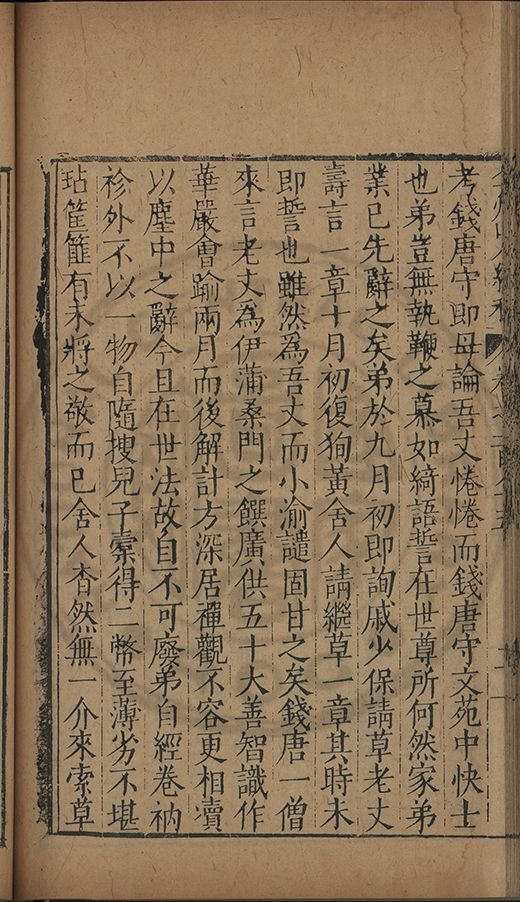 考錢唐守即毋論吾丈惓惓而錢唐守文苑中快士
也弟豈無執鞭之慕如綺語誓在世尊所何然家弟
業已先辭之矣弟於九月初即詢戚少保請草老丈
壽言一章十月初復狥黃舍人請繼草一章其時未
即誓也雖然為吾丈而小渝譴固甘之矣錢唐一僧
來言老丈為伊蒲桑門之饌廣供五十大善智識作
華嚴會踰兩月而後解計方深居禪觀不容更相凟
以塵中之辭今且在世法故自不可廢弟自經卷衲
袗外不以一物自隨搜兒子槖得二幣至薄劣不堪
玷筐篚有未將之敬而已舍人杳然無一介來索草